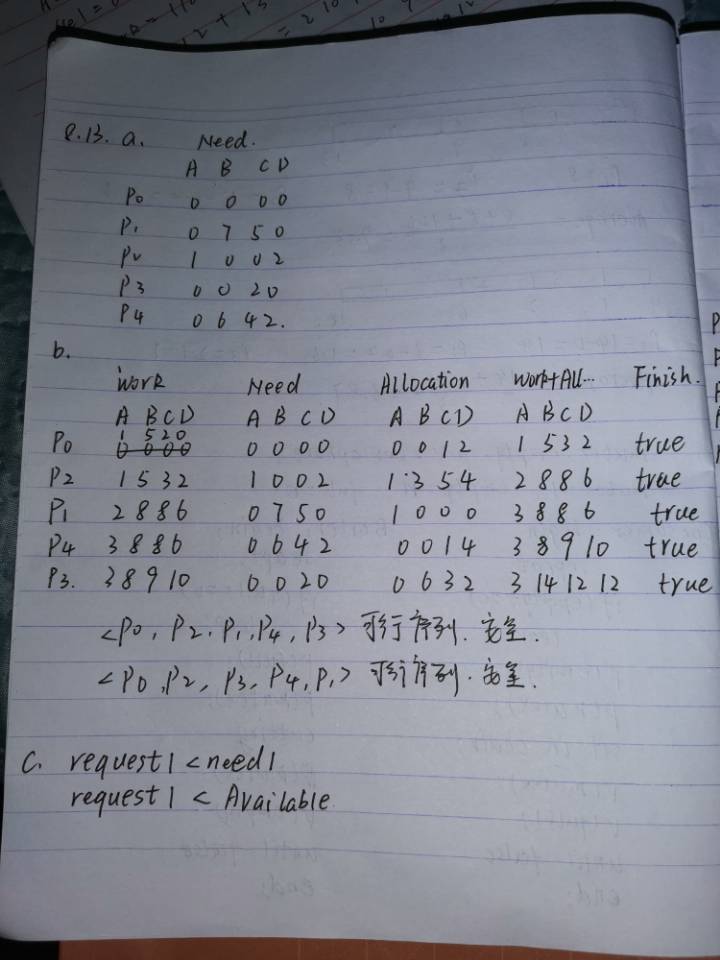 8.13. a. Need.
A B C D
P0 0 0 0 0
P1 0 7 5 0
P2 1 0 0 2
P3 0 0 2 0
P4 0 6 4 2.
b.
Work Need Allocation Work+All... Finish.
A B C D A B C D A B C D A B C D
P0 1 5 2 0 0 0 0 0 0 0 1 2 1 5 3 2 true
P2 1 5 3 2 1 0 0 2 1 3 5 4 2 8 8 6 true
P1 2 8 8 6 0 7 5 0 1 0 0 0 3 8 8 6 true
P4 3 8 8 6 0 6 4 2 0 0 1 4 3 8 9 10 true
P3. 3 8 9 10 0 0 2 0 0 6 3 2 3 14 12 12 true
<P0, P2, P1, P4, P3> 可行序列. 安全.
<P0, P2, P3, P4, P1> 可行序列. 安全.
C. request1 < need1
request1 < Available